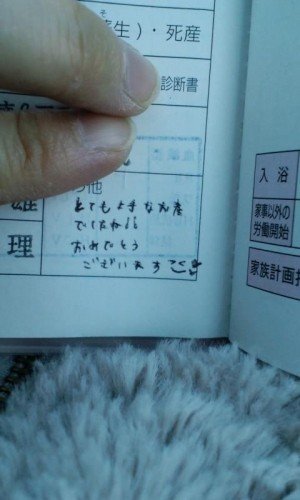 生)・死産
診断書
の他
とても上手なお産
でしたね!!
おめでとう
ございます
理
入浴
家事以外の
労働開始
家族計画